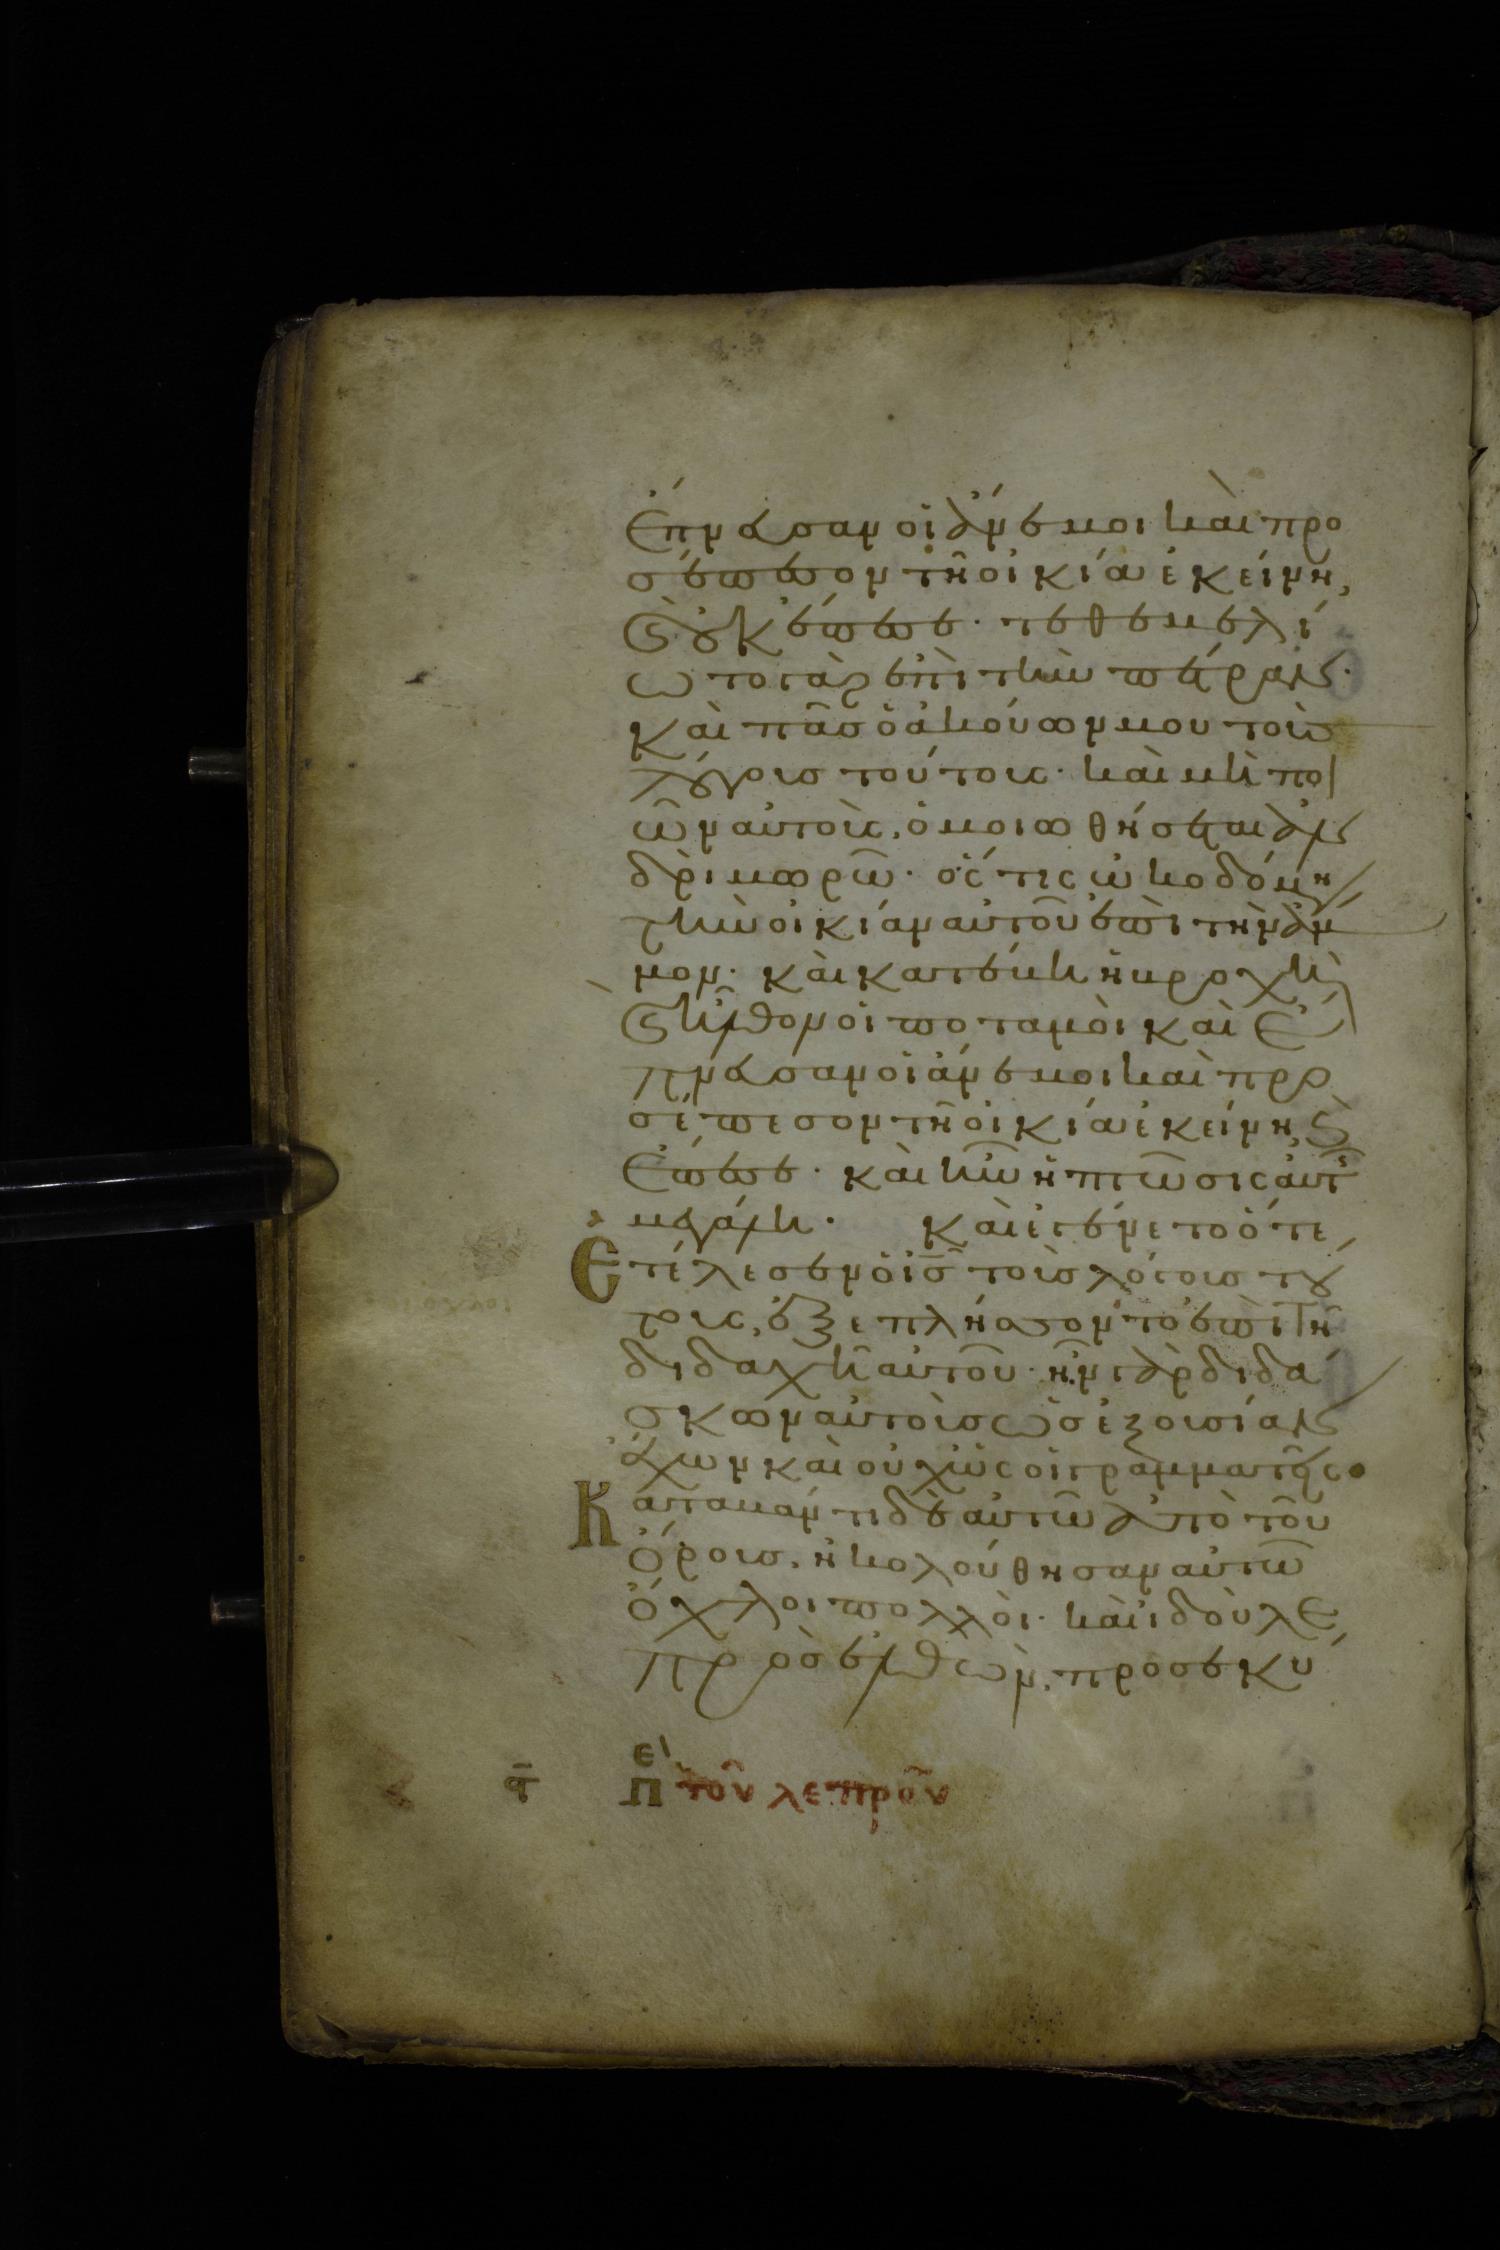 ἔπνευσαν οἱ ἄνεμοι καὶ προ
σέπεσον τῆ οἰκία ἐκείνη,
καὶ οὐκ ἔπεσε· τεθεμελί
ωτο γὰρ ἐπὶ τὴν πέτραν·
Καὶ πᾶσ ὁ ἀκούων μου τοὺσ
λόγουσ τούτους· καὶ μὴ ποι
ῶν αὐτοὺς, ὁμοιωθήσεται ἀν
δρὶ μωρῶ· ὅς τις ὠκοδόμη
τὴν οἰκίαν αὐτοῦ ἐπὶ τὴν ἄμ
μον· καὶ κατέβη ἡ βροχὴ
καὶ ἦλθον οἱ ποταμοὶ καὶ ἔ
πνευσαν οἱ ἄνεμοι καὶ προ
σέπεσον τῆ οἰκία ἐκείνη, καὶ
ἔπεσε· καὶ ἦν ἡ πτῶσις αὐτ
μεγάλη· Καὶ ἐγένετο ὅτε
Ἐτέλεσεν ὁ ἰς τοὺσ λόγουσ τού
τους, ἐξεπλήσσοντο ἐπὶ τῆ
διδαχῆ αὐτοῦ· ἦν γὰρ διδά
σκων αὐτοὺσ ὡσ ἐξουσίαν
ἔχων καὶ οὐχ ὡς οἱ γραμματεῖς
Καταβάντι δὲ αὐτῶ ἀπὸ τοῦ
ὄρουσ, ἠκολούθησαν αὐτῶ
ὄχλοι πολλοὶ· καὶ ἰδοὺ λε
πρὸσ ἐλθὼν, προσεκύ
εἰ
π τοῦ λεπροῦ